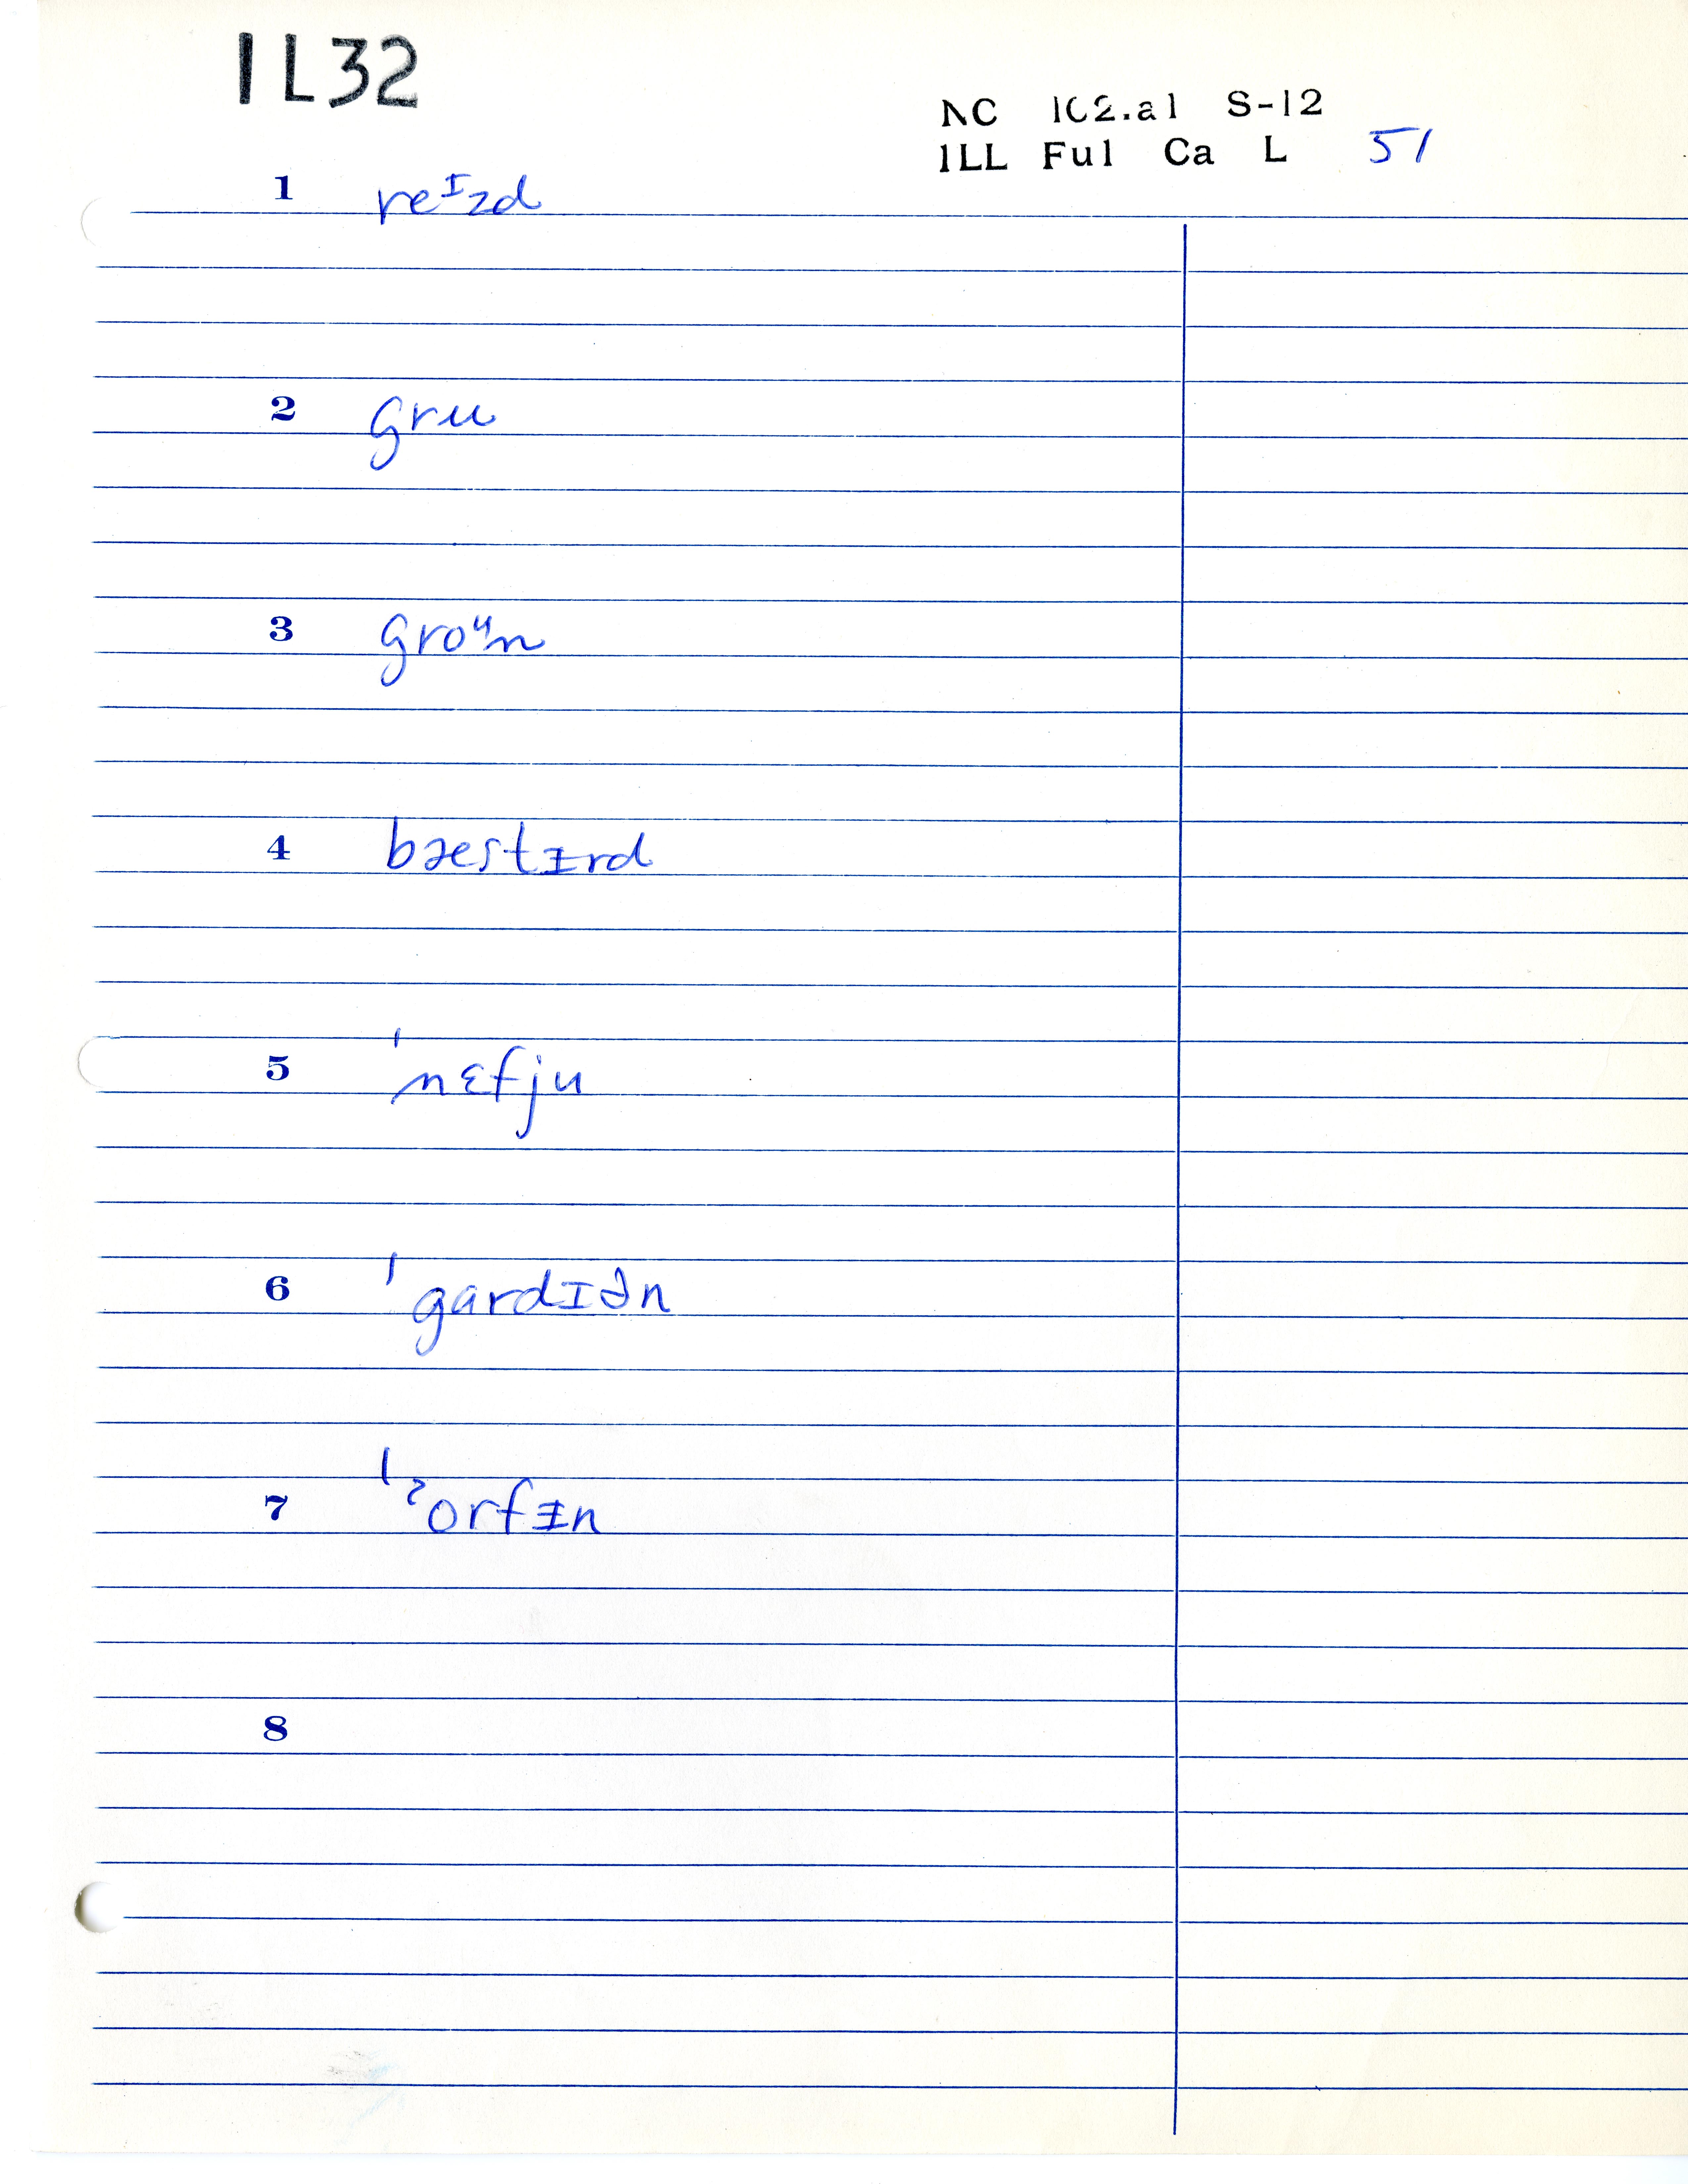 IL32
NC 102.a1 S-12
ILL Ful Ca L 51
1 reᶦzd
2 gru
3 groᵘn
4 bæstɨrd
5 ˈnɛfju
6 ˈgardɪən
7 ˈˀorfɨn
8